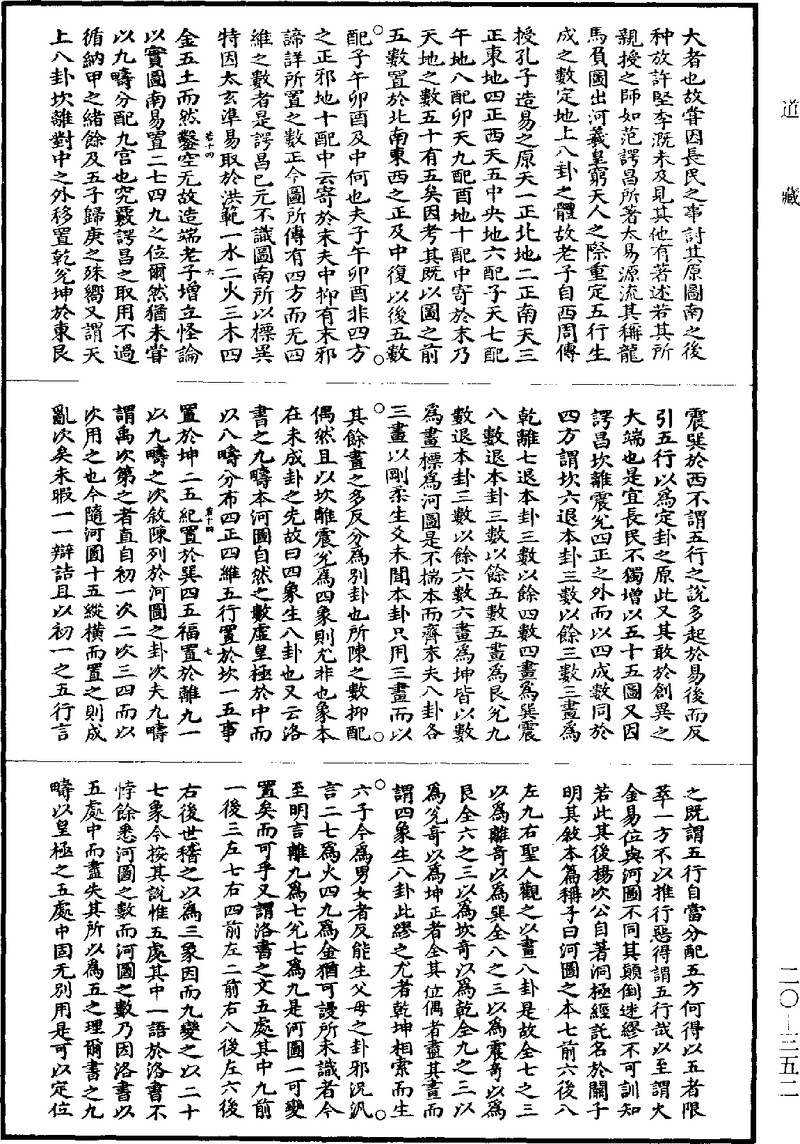 道藏
大者也故嘗因長民之事討其原圖南之後
种放許堅李溉未及見其他有著述若其所
親授之師如范諤昌所著大易源流其稱龍
馬負圖出河羲皇窮天人之際重定五行生
成之數定地上八卦之體故老子自西周傳
授孔子造易之原天一正北地二正南天三
正東地四正西天五中央地六配子天七配
午地八配卯天九配酉地十配中寄於末乃
天地之數五十有五矣因考其既以圖之前
五數置於北南東西之正及中復以後五數
配子午卯酉及中何也夫子午卯酉非四方
之正邪地十配中云寄於末夫中抑有末邪
諦詳所置之數正今圖所傳有四方而无四
維之數者是諤昌已元不識圖南所以標異
特因太玄準易取於洪範一水二火三木四
金五土而然鑿空无故造端老子增立怪論
以實圖南易置二七四九之位爾然猶未嘗
以九疇分配九宫也究覈諤昌之取用不過
循納甲之緒餘及五子歸庚之殊嚮又謂天
上八卦坎離對中之外移置乾兊坤於東艮
卷十四
六
震巽於西不謂五行之說多起於易後而反
引五行以為定卦之原此又其敢於創異之
大端也是宜長民不獨增以五十五圖又因
諤昌坎離震兊四正之外而以四成數同於
四方謂坎六退本卦三數以餘三數三畫為
乾離七退本卦三數以餘四數四畫為巽震
八數退本卦三數以餘五數五畫為艮兊九
數退本卦三數以餘六數六畫為坤皆以數
為畫標為河圖是不揣本而齊末夫八卦各
三畫以剛柔生爻未聞本卦只用三畫而以
其餘畫之多反分為別卦也所陳之數抑配
偶然且以坎離震兊為四象則尤非也象本
在未成卦之先故曰四象生八卦也又云洛
書之九疇本河圖自然之數虛皇極於中而
以八疇分布四正四維五行置於坎一五事
置於坤二五紀置於巽四五福置於離九一
以九疇之次敘陳列於河圖之卦次夫九疇
謂禹次第之者直自初一次二次三四而以
次用之也今隨河圖十五縱橫而置之則成
亂次矣未暇一一辯詰且以初一之五行言
卷十四
七
之既謂五行自當分配五方何得以五者限
萃一方不以推行惡得謂五行哉以至謂火
金易位與河圖不同其顛倒迷繆不可訓知
若此其後楊次公自著洞極經託名於關子
明其敘本篇稱子曰河圖之本七前六後八
左九右聖人觀之以畫八卦是故全七之三
以為離奇以為巽全八之三以為震奇以為
艮全六之三以為坎奇以為乾全九之三以
為兊奇以為坤正者全其位偶者盡其畫而
謂四象生八卦此繆之尤者乾坤相索而生
六子今為男女者反能生父母之卦邪況汎
言二七為火四九為金猶可謾所未識者今
至明言離九為七兊七為九是河圖一可變
置矣而可乎又謂洛書之文五處其中九前
一後三左七右四前左二前右八後左六後
右後世稽之以為三象因而九變之以二十
七象今按其說惟五處其中一語於洛書不
悖餘悉河圖之數而河圖之數乃因洛書以
五處中而盡失其所以為五之理爾書之九
疇以皇極之五處中因无別用是可以定位
二〇—三五二